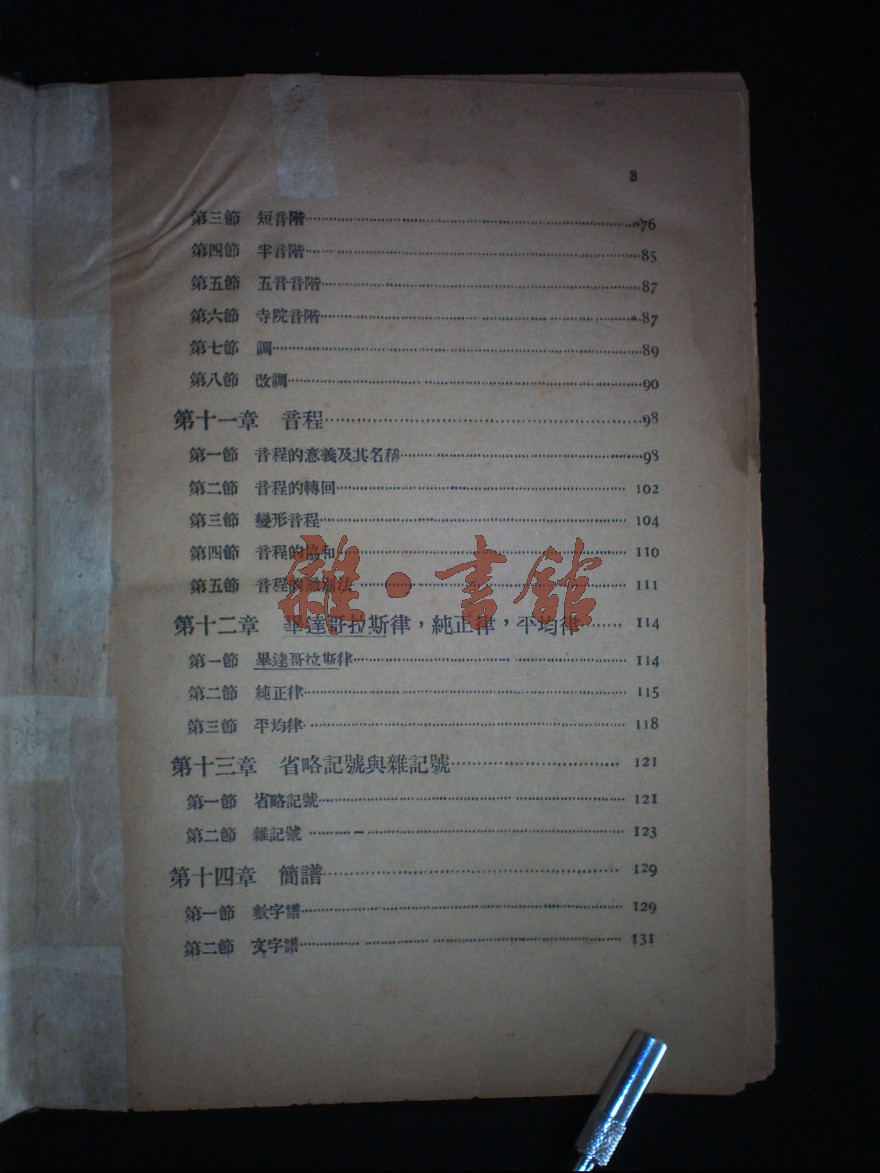 3
第三節 短音階………76
第四節 半音階………85
第五節 五音音階………87
第六節 寺院音階………87
第七節 調………89
第八節 改調………90
第十一章 音程………98
第一節 音程的意義及其名稱………98
第二節 音程的轉回………102
第三節 變形音程………104
第四節 音程的協和………110
第五節 音程的識別法………111
第十二章 畢達哥拉斯律，純正律，平均律………114
第一節 畢達哥拉斯律………114
第二節 純正律………115
第三節 平均律………118
第十三章 省略記號與雜記號………121
第一節 省略記號………121
第二節 雜記號………123
第十四章 簡譜………129
第一節 數字譜………129
第二節 文字譜………131
雜·書館